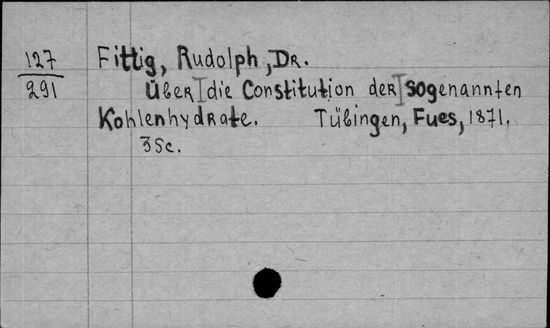 127 Fittig, Rudolph, Dr.
291 Über die Constitution der sogenannten
Kohlenhydrate. Tübingen, Fues, 1871.
35c.